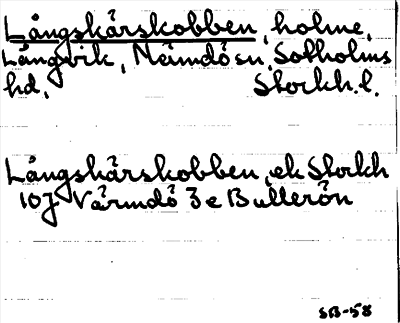 Långskärskobben, holme,
Långvik, Nämdö sn, Sotholms
hd, Stockh. l.
Långskärskobben, ek Stockh
10J Värmdö 3 e Bullerön
SB-58